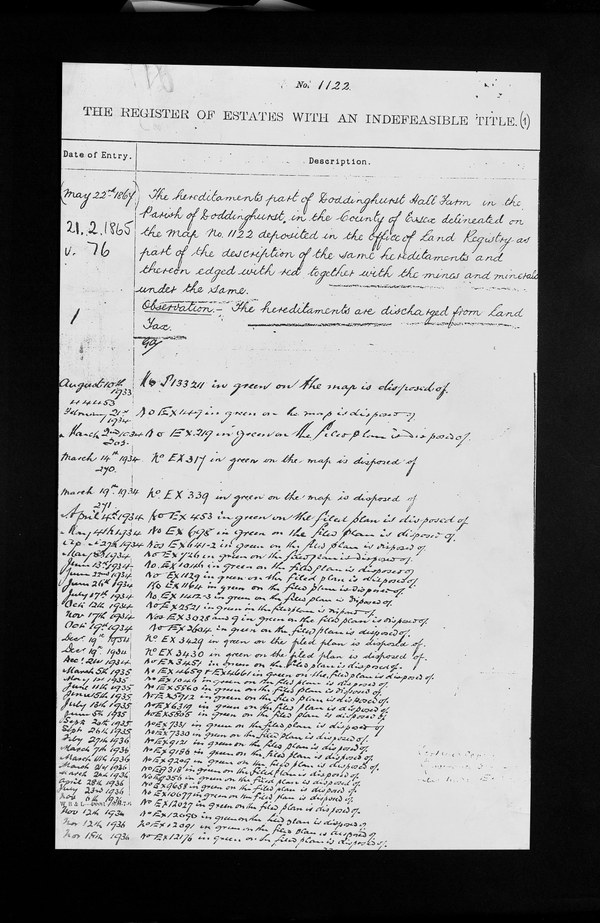 No. 1122
THE REGISTER OF ESTATES WITH AN INDEFEASIBLE TITLE. (1)
Date of Entry. Description.
May 22nd 1864 The hereditaments part of Doddinghurst Hall Farm in the
Parish of Doddinghurst, in the County of Essex delineated on
21.2.1865 the Map No. 1122 deposited in the Office of Land Registry as
v. 76 part of the description of the same hereditaments and
thereon edged with red together with the mines and minerals
under the same.
1 Observation.- The hereditaments are discharged from Land
Tax.
August 10th 1933 No P133211 in green on the map is disposed of.
February 21st 1934 No EX149 in green on the map is disposed of
March 2nd 1934 No EX.219 in green on the filed plan is disposed of.
March 14th 1934 No EX317 in green on the map is disposed of
270.
March 19th 1934 No EX 339 in green on the map is disposed of
271.
April 4th 1934 No EX 453 in green on the filed plan is disposed of
May 4th 1934 No EX 698 in green on the filed plan is disposed of.
in green on the filed plan is disposed of.
May 8th 1934 in green on the filed plan is disposed of.
June 13th 1934 in green on the filed plan is disposed of
June 22nd 1934 No EX1129 in green on the filed plan is disposed of.
June 26th 1934 No EX1164 in green on the filed plan is disposed of
July 17th 1934 No EX1412-3 in green on the filed plan is disposed of.
Oct 12th 1934 No EX2521 in green on the filed plan is disposed of.
Nov 17th 1934 Nos EX3028 and 9 in green on the filed plan is disposed of.
Oct 19th 1934 No EX2634 in green on the filed plan is disposed of.
Dec. 19th No EX 3429 in green on the filed plan is disposed of.
Dec. 19th No EX 3430 in green on the filed plan is disposed of.
Dec. 21st 1934 No EX3457 in green on the filed plan is disposed of.
March 5th 1935 No EX4659 EX4661 in green on the filed plan is disposed of.
May 1935 in green on the filed plan is disposed of
June 11th 1935 No EX5860 in green on the filed plan is disposed of.
June 15th 1935 No EX5912 in green on the filed plan is disposed of.
July 13th 1935 No EX6319 in green on the filed plan is disposed of.
June 1935 No EX5805 in green on the filed plan is disposed of
Sept 20th 1935 No EX7331 in green on the filed plan is disposed of
Sept 26th 1935 No EX7330 in green on the filed plan is disposed of.
Feby 27th 1936 No EX9121 in green on the filed plan is disposed of.
March 7th 1936 No EX9186 in green on the filed plan is disposed of.
March 1936 No EX9209 in green on the filed plan is disposed of.
March 1936 in green on the filed plan is disposed of.
March 2nd 1936 in green on the filed plan is disposed of.
April 28th 1936 in green on the filed plan is disposed of.
July 23rd 1936 No EX10677 in green on the filed plan is disposed of.
Nov 1936 No EX12027 in green on the filed plan is disposed of.
Nov 12th 1936 No EX12090 in green on the filed plan is disposed of
Nov 12th 1936 No EX12091 in green on the filed plan is disposed of
Nov 18th 1936 No EX12176 in green on the filed plan is disposed of.